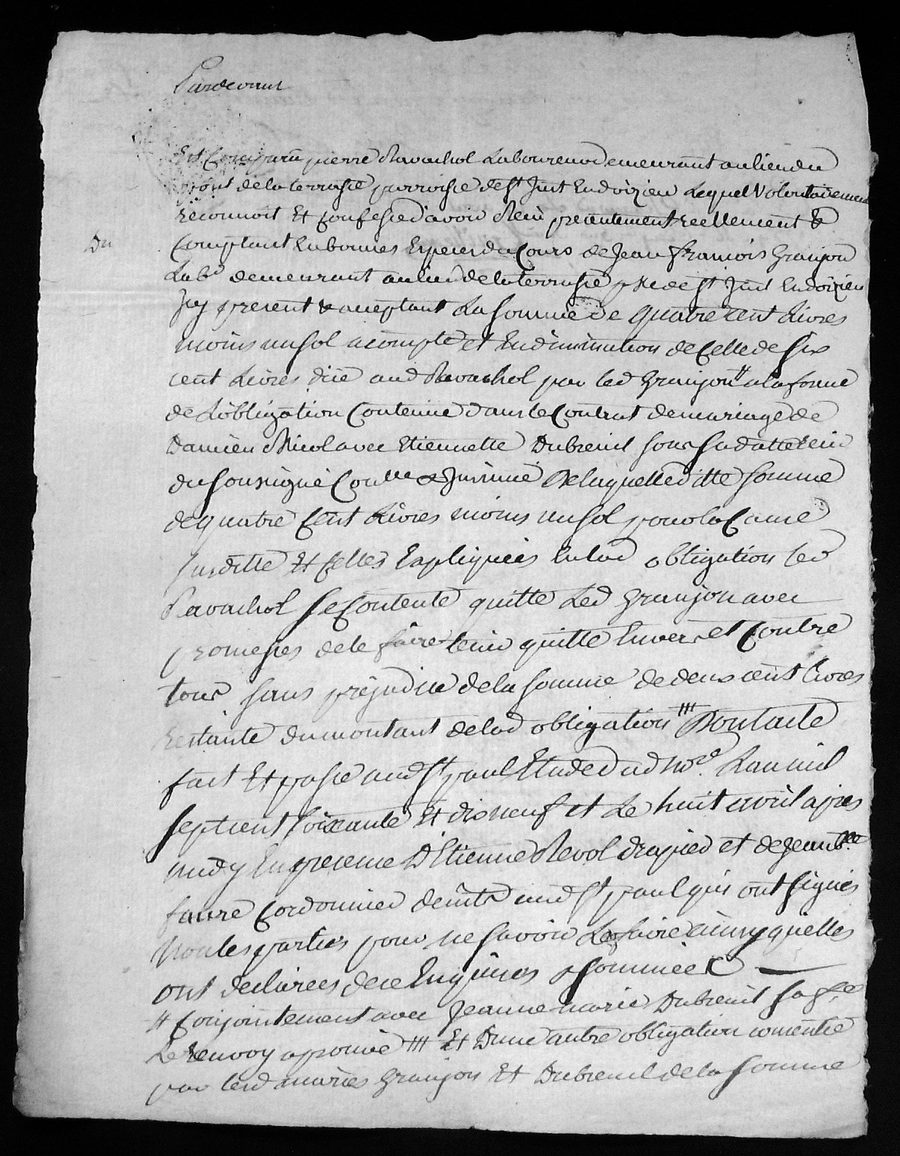 Pardevant
Est comparu pierre Ravachol Laboureur demeurant au lieu du
pont de la terrasse parroisse de st Just En doizieu Lequel Volontairement
reconnoit Et confesse d'avoir Reçu presentement reellement &
Du
Comptant En bonnes Especes du Cours de Jean françois Granjon
Labr demeurant au lieu de la terrasse psse de st Just En doizieu
Icy present & acceptant La somme de quatre cent Livres
moins un sol a compte et En diminution de Celle de six
cent Livres düe aud Ravachol par led Granjon # a la forme
de L'obligation Contenüe dans le Contrat de mariage de
Damien Nicol avec Etiennette Dubreuil sous sa datte Reçu
du soussigné Coulle & Insinué De laquelle ditte somme
de quatre Cent Livres moins un sol pour la Cause
susditte Et Celles Expliquées En lad obligation led
Ravachol se Contente quitte Led Granjon avec
promesses de le faire tenir quitte Envers et Contre
tous sans prejudice de la somme de deux cent Livres
restante du montant de lad obligation ### Dont acte
fait Et passé aud st paul Etude dud nore. L'an mil
sept cent soixante Et dix neuf et Le huit avril apres
midy En presence D'Etienne Revol drapier et de Jean Bte
faure Cordonnier demts aud st paul qui ont signés
Non les parties pour ne savoir Le faire ainsy quelles
ont declarées de ce Enquises & sommées
# Conjointement avec Jeanne marie Dubreuil sa fe
Le renvoy aprouvé ### Et D'une autre obligation consentie
par lesd mariés Granjon Et Dubreuil de la somme